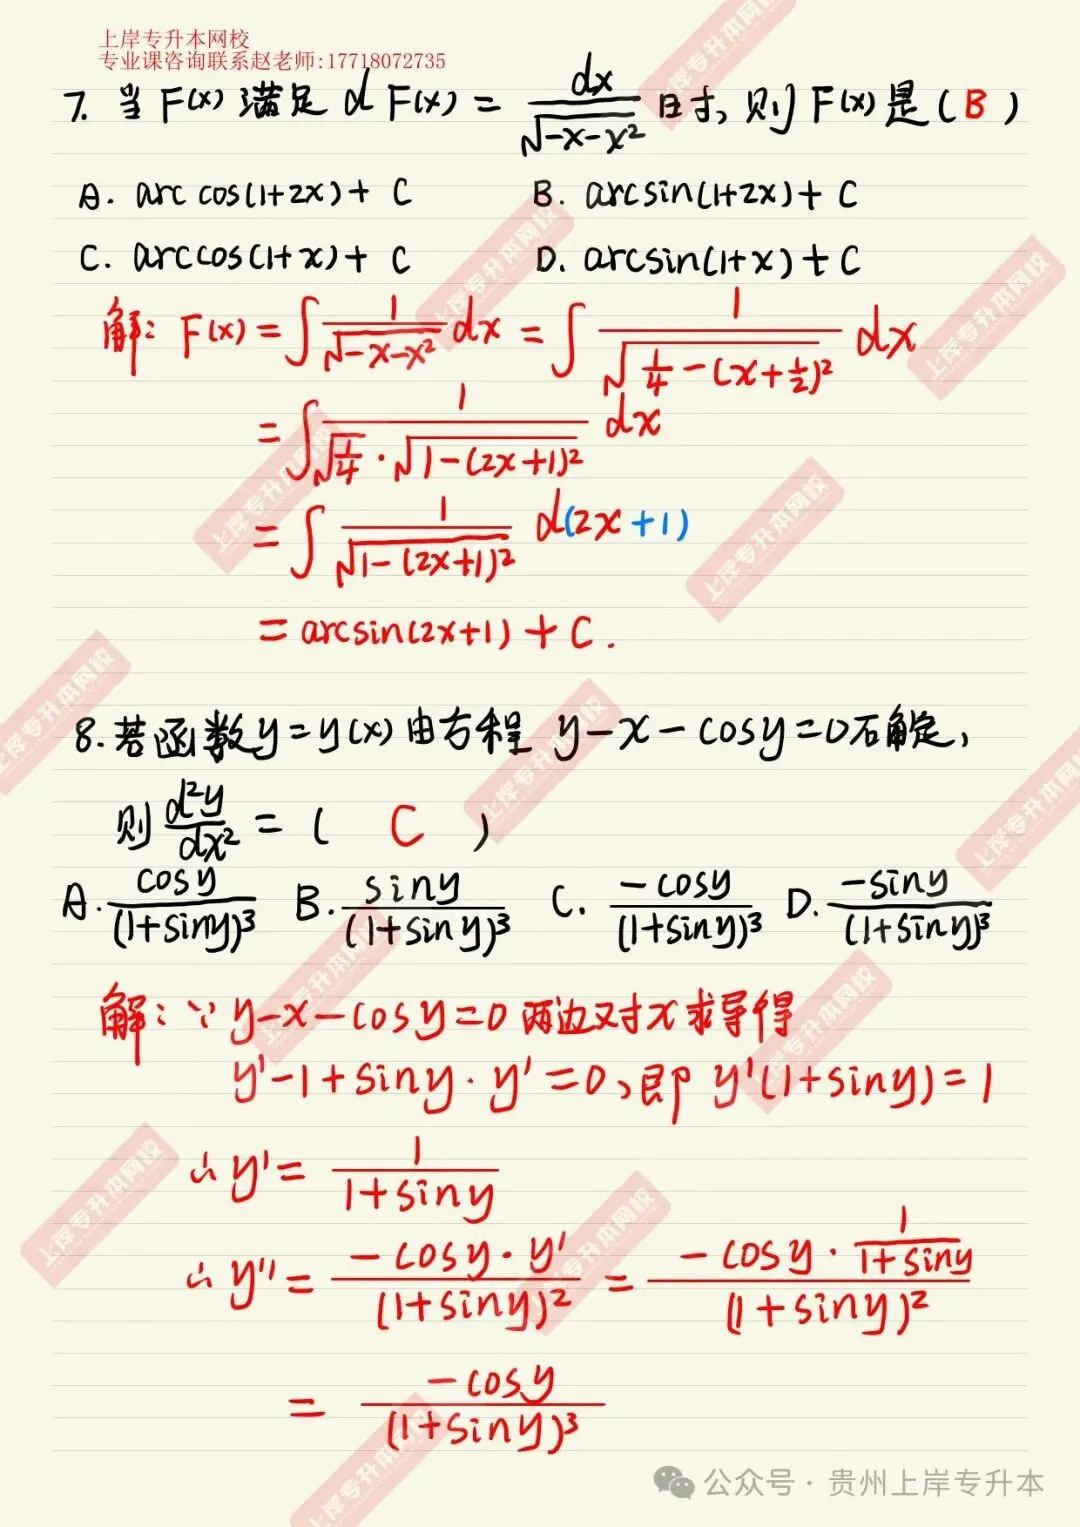 上岸专升本网校
专业课咨询联系赵老师:17718072735
7. 当 F(x) 满足 d F(x) = dx/√(-x-x²) 时, 则 F(x) 是 ( B )
A. arc cos(1+2x) + C   B. arcsin(1+2x) + C
C. arccos(1+x) + C   D. arcsin(1+x) + C
解: F(x) = ∫ 1/√(-x-x²) dx = ∫ 1/√(1/4-(x+1/2)²) dx
= ∫ 1/(√(1/4)·√(1-(2x+1)²)) dx
= ∫ 1/√(1-(2x+1)²) d(2x+1)
= arcsin(2x+1) + C.
8. 若函数 y=y(x) 由方程 y-x-cosy=0 确定,
则 d²y/dx² = ( C )
A. cosy/(1+siny)³   B. siny/(1+siny)³   C. -cosy/(1+siny)³   D. -siny/(1+siny)³
解: ∵ y-x-cosy=0 两边对x求导得
y'-1+siny·y'=0, 即 y'(1+siny)=1
∴ y' = 1/(1+siny)
∴ y'' = -cosy·y'/(1+siny)² = -cosy·1/(1+siny)/(1+siny)²
= -cosy/(1+siny)³
公众号·贵州上岸专升本